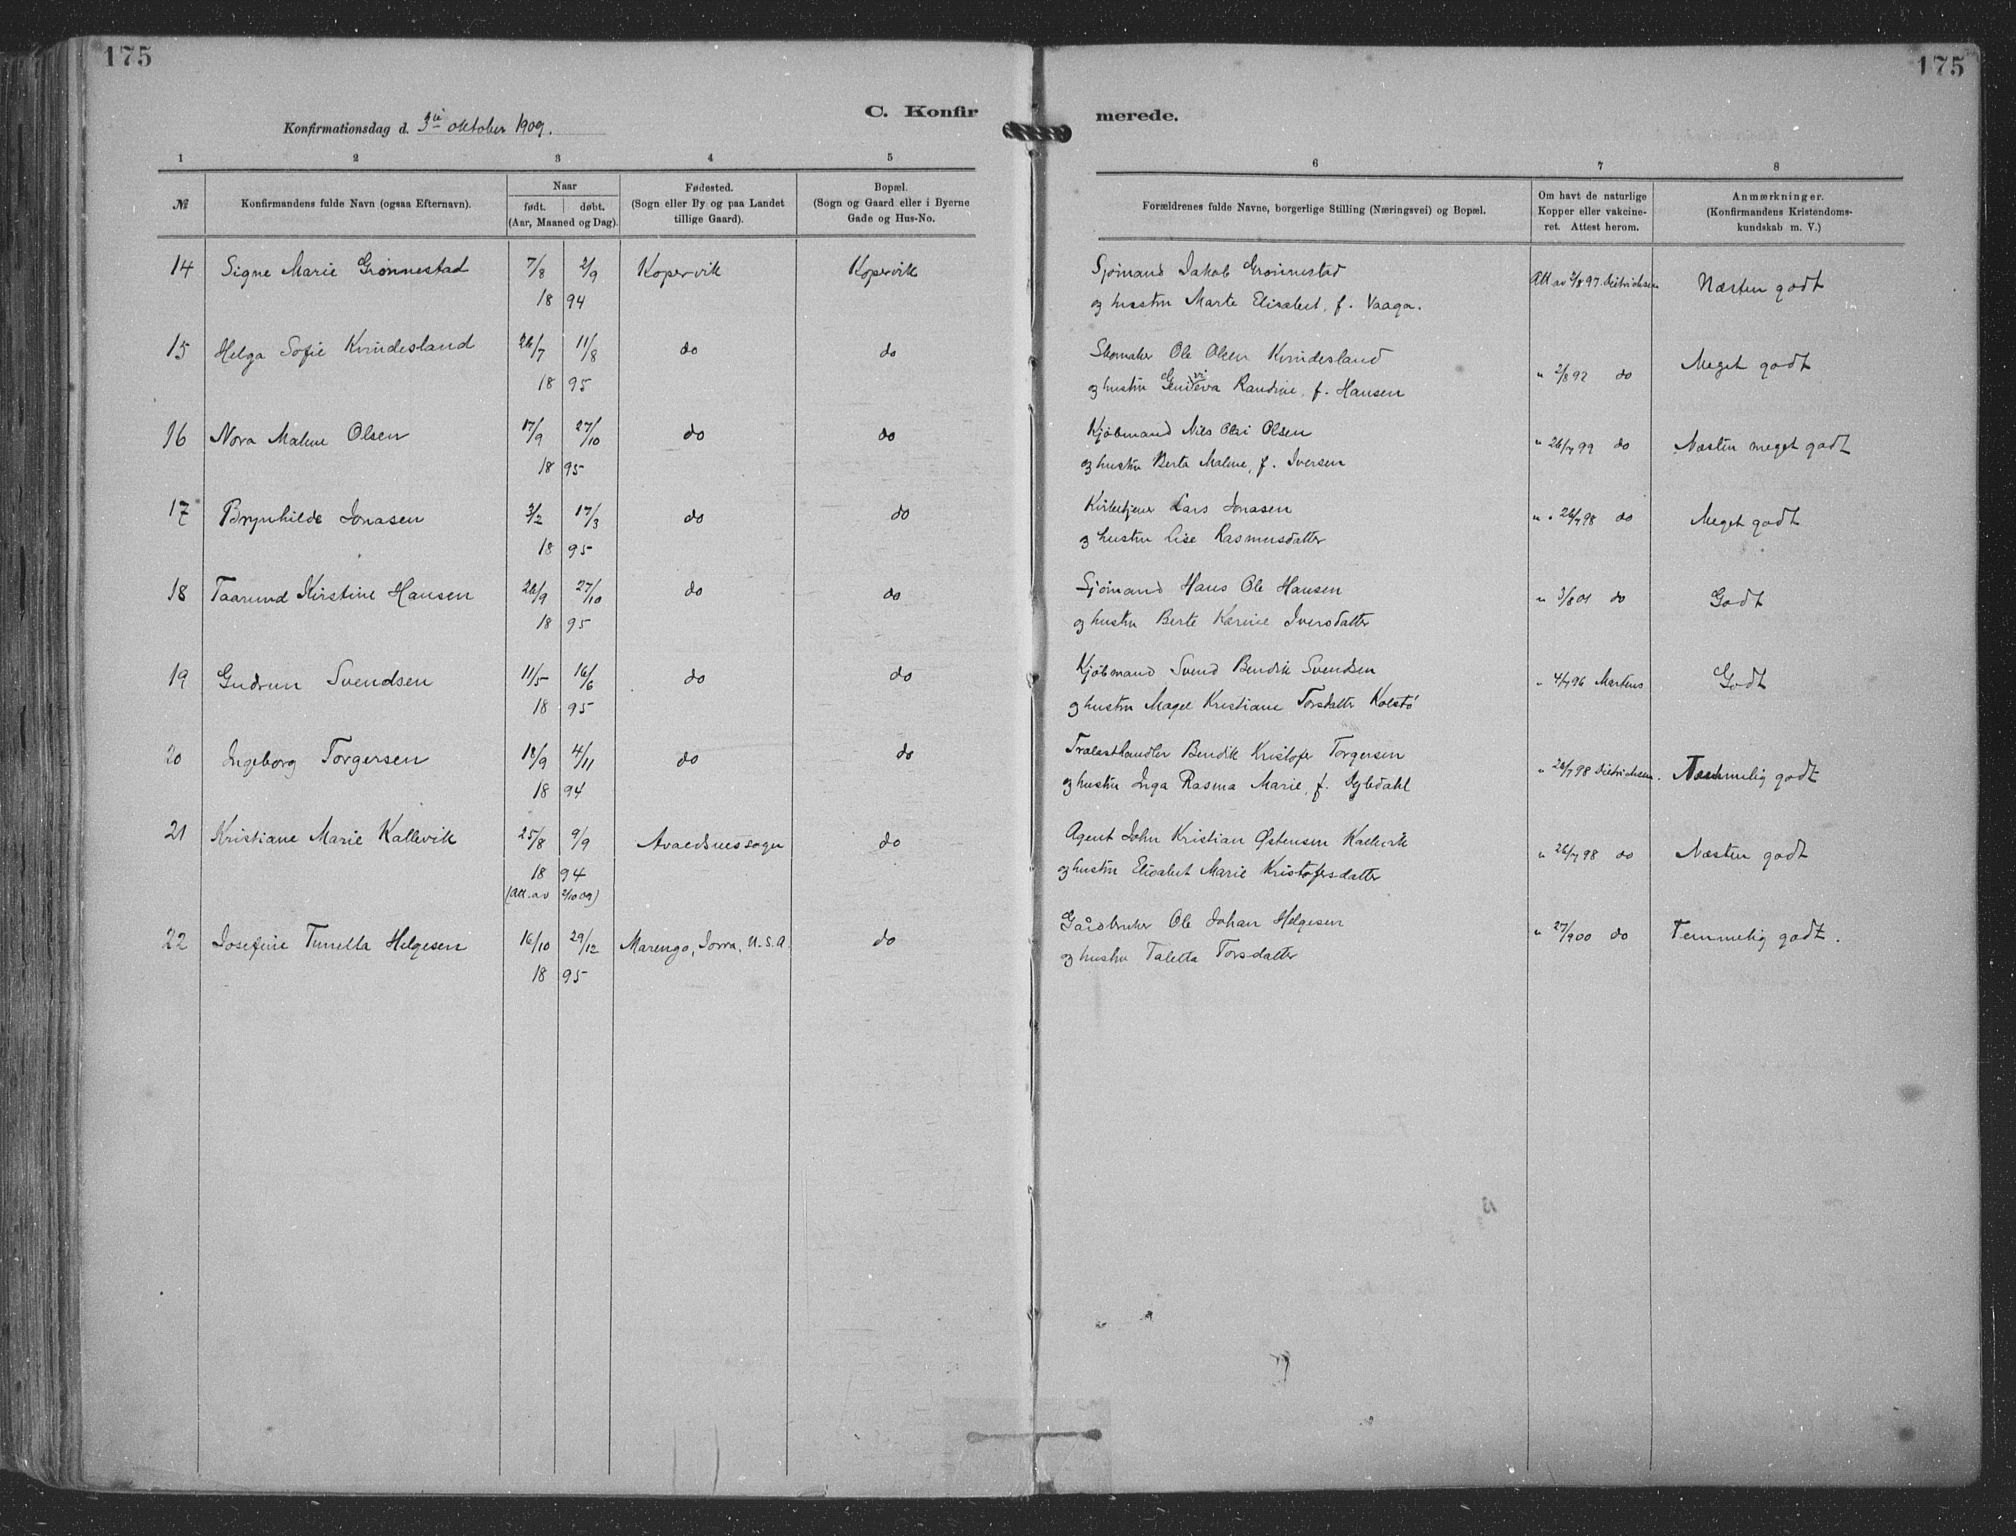 175
175
C. Konfir
merede.
Konfirmationsdag d. 3die oktober 1909.
1 2 3 4 5
6 7 8
№ Konfirmandens fulde Navn (ogsaa Efternavn). Naar født. døbt. (Aar, Maaned og Dag). Fødested. (Sogn eller By og paa Landet tillige Gaard). Bopæl. (Sogn og Gaard eller i Byerne Gade og Hus-No.
Forældrenes fulde Navne, borgerlige Stilling (Næringsvei) og Bopæl. Om havt de naturlige Kopper eller vakcineret. Attest herom. Anmærkninger. (Konfirmandens Kristendomskundskab m. V.)
14 Signe Marie Grønnestad 7/8 2/9 Kopervik Kopervik Sjømand Jakob Grønnestad Att av 2/8 97. Dietrichsen Næsten godt
18 94 og hustru Marte Elisabet, f. Vaaga.
15 Helga Sofie Kvindesland 26/7 11/8 do do Skomaker Ole Olsen Kvindesland " 2/8 92 do Meget godt
18 95 og hustru Randine, f. Hansen
16 Nora Malene Olsen 17/9 27/10 do do Kjøbmand Nils Olai Olsen " 26/7 99 do Næsten meget godt
18 95 og hustru Berta Malene, f. Iversen
17 Brynhilde Jonasen 3/2 17/3 do do Kirketjener Lars Jonasen " " 26/7 98 do Meget godt
18 95 og hustru Lise Rasmusdatter
18 Kirstine Hansen 26/9 27/10 do do Sjømand Hans Ole Hansen " 3/8 01 do Godt
18 95 og hustru Berte Karine Iversdatter
19 Gudrun Svendsen 11/5 16/6 do do Kjøbmand Svend Bendik Svendsen " 4/7 96 Martens Godt
18 95 og hustru Magel Kristiane Torsdatter Kolstø
20 Ingeborg Torgersen 18/9 4/11 do do Trælasthandler Bendik Kristofer Torgersen " 26/7 98 Dietrichsen. Temmelig godt
18 94 og hustru Inga Rasma Marie, f. Dybdahl
21 Kristiane Marie Kallevik 25/8 9/9 Avaldsnes sogn do Agent John Kristian Østensen Kallevik " 26/7 98 do Næsten godt
18 94 og hustru Elisabet Marie Kristofersdatter
(Att. av 2/10 09)
22 Josefine Tunetta Helgesen 16/10 29/12 Marengo, Iowa, U.S.A. do Gårdbruker Ole Johan Helgesen " 27/9 00 do Temmelig godt.
18 95 og hustru Taletta Torsdatter